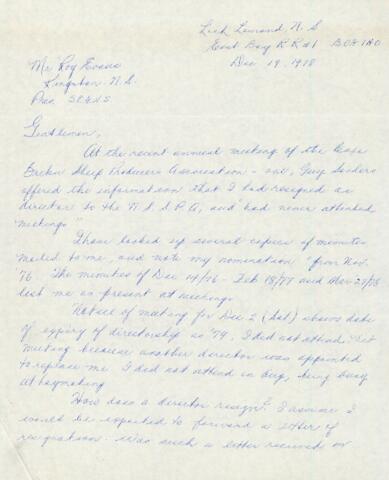 N. S.
East Bay R R #1 B0A 1H0
Dec 19, 1978
Mr Roy Evans
Kingston. N. S.
Pres.
Gentlemen,
At the recent annual meeting of the Cape
Breton Sheep Producers Association - one, Guy
offered the information that I had resigned as
director to the N. S. S. P. A, and "had never attended
meetings"
I have looked up several copies of minutes
mailed to me, and note my nomination from Nov.
'76. The minutes of Dec 14/76 - Feb 18/77 and Mar 27/78
list me as present at meetings.
Notice of meeting for Dec 2 (Sat) shows date
of expiry of directorship as '79, I did not attend that
meeting because another director was appointed
to replace me. I did not attend in Aug, being busy
at haymaking
How does a director resign? I assume I
would be expected to forward a letter of
resignation - was such a letter received or